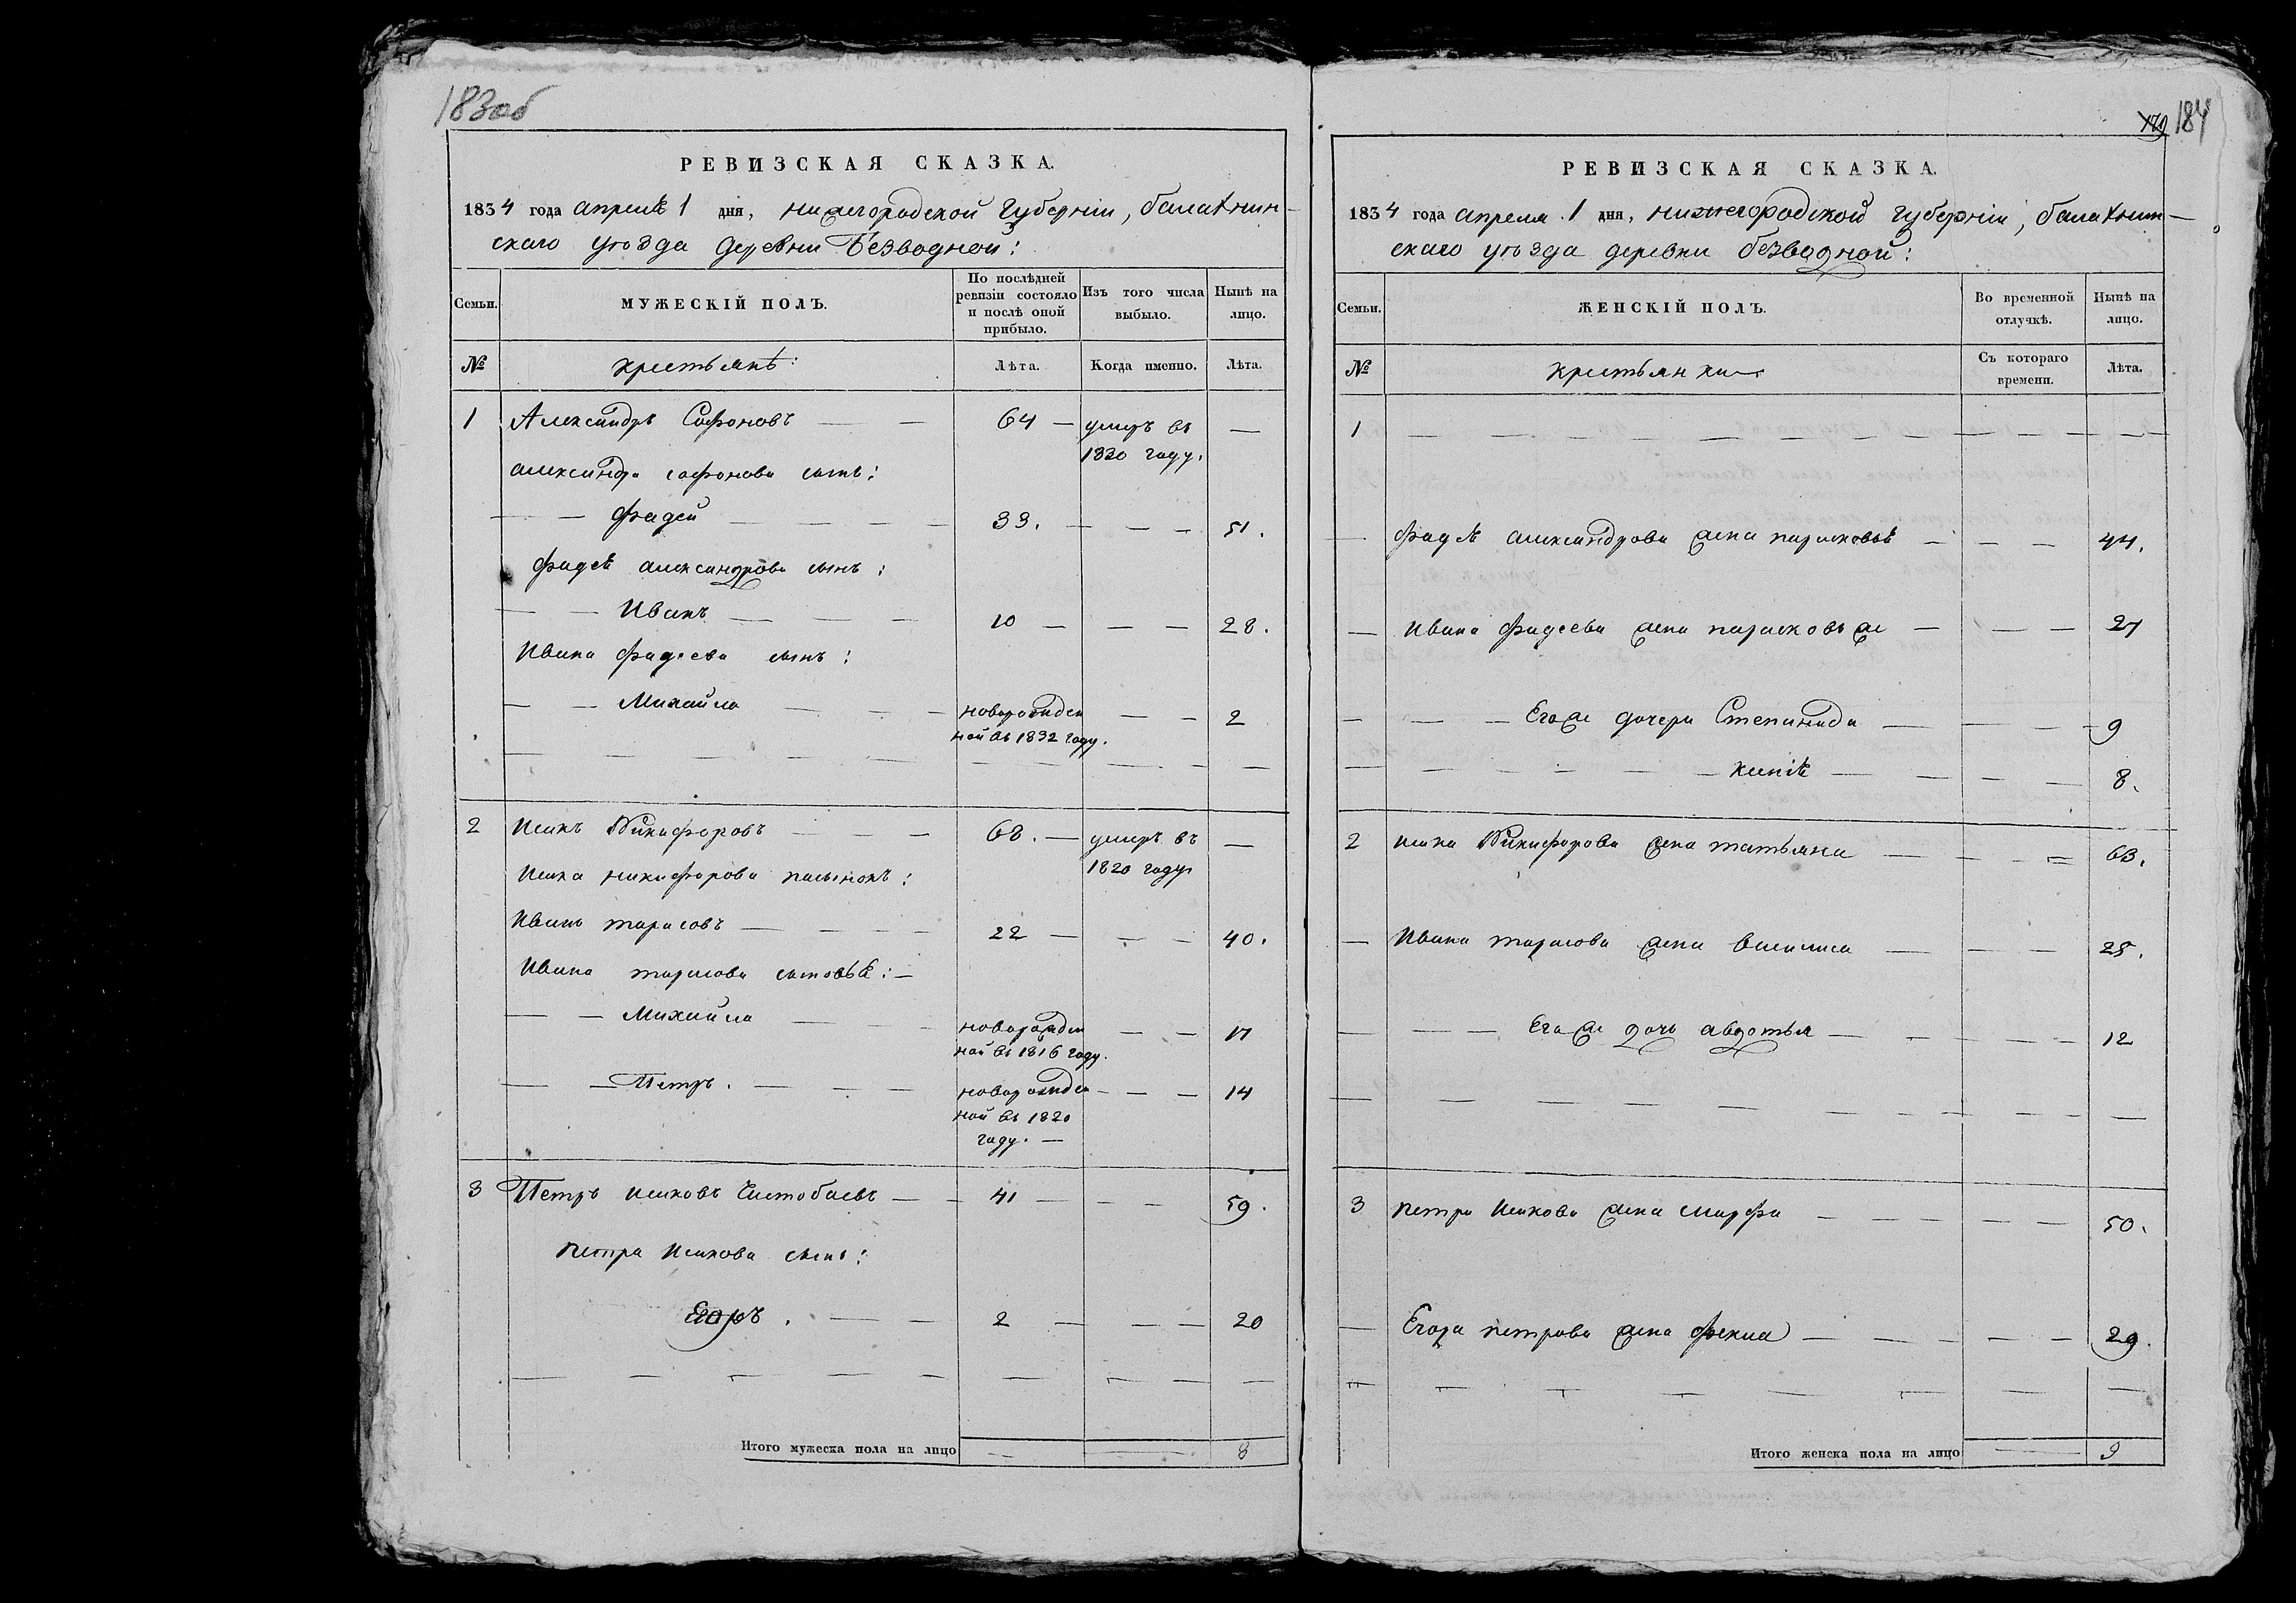 183об
РЕВИЗСКАЯ СКАЗКА.
1834 года апреля 1 дня, нижегородской губерніи, балахнин-
скаго уѣзда деревни Безводной:
Семьи.
МУЖЕСКІЙ ПОЛЪ.
По послѣдней
ревизіи состояло
и послѣ оной
прибыло.
Изъ того числа
выбыло.
Нынѣ на
лицо.
№
крестьянѣ:
Лѣта.
Когда именно.
Лѣта.
1 Александръ Сафоновъ 64 умеръ въ
1830 году.
александра сафонова сынъ:
Фадей 33. 51.
Фадея александрова сынъ:
Иванъ 10 28.
Ивана Фадеева сынъ:
Михайла новорожден 2
ной въ 1832 году.
2 Исакъ Никифоровъ 68. умеръ въ
1820 году
Исака никифорова пасынокъ:
Иванъ тарасовъ 22 40.
Ивана тарасова сыновья:
Михайла новорожден 17
ной въ 1816 году.
Петръ. новорожден 14
ной въ 1820
году.
3 Петръ Исаковъ Чистобаевъ 41 59.
петра Исакова сынъ:
Егоръ. 2 20
Итого мужеска пола на лицо 8
179 184
РЕВИЗСКАЯ СКАЗКА.
1834 года апреля 1 дня, нижегородской губерніи, балахнин-
скаго уѣзда деревни безводной:
Семьи.
ЖЕНСКІЙ ПОЛЪ.
Во временной
отлучкѣ.
Нынѣ на
лицо.
№
крестьянки
Съ котораго
времени.
Лѣта.
1
Фадея александрова жена парасковья 44.
Ивана Фадеева жена парасковья 27
Егоже дочери Степанида 9
8.
2 исака Никифорова жена татьяна 63.
Ивана тарасова жена василиса 25.
Егоже дочь авдотья 12
3 петра Исакова жена марфа 50.
Егора петрова жена фекла 29.
Итого женска пола на лицо 9